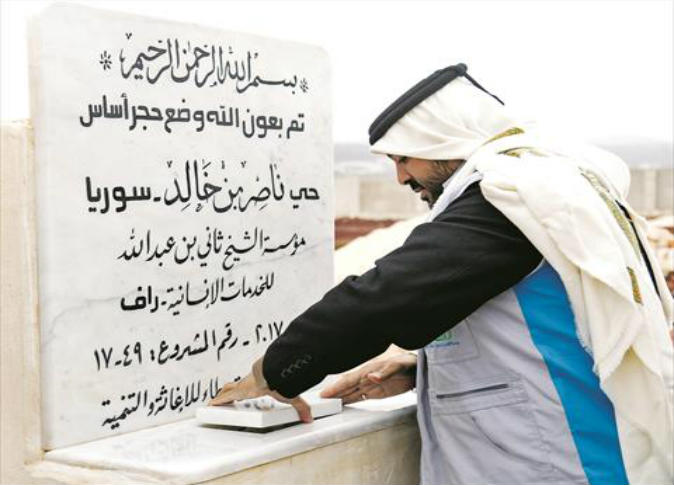 * بسم الله الرحمن الرحيم *
تم بعون الله وضع حجر أساس
حي ناصر بن خالد - سوريا
مؤسسة الشيخ ثاني بن عبد الله
للخدمات الإنسانية - راف
٢٠١٧ - رقم المشروع : ٤٩-١٧
للإغاثة والتنمية